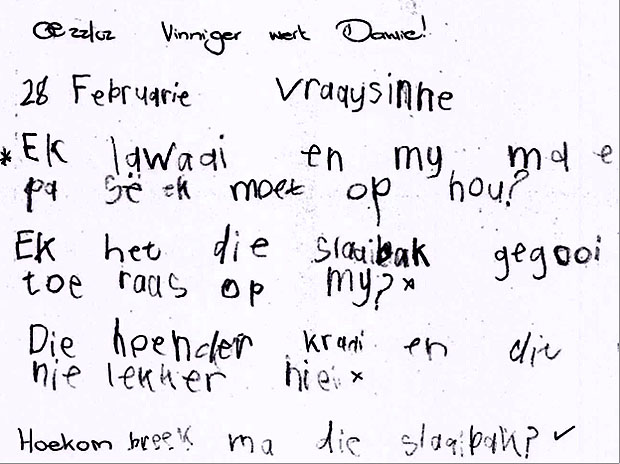 22/02 Vinniger werk Dawie!
28 Februarie Vraaysinne
* Ek lawaai en my ma e
pa sê ek moet op hou?
Ek het die slaaibak gegooi
toe raas op my? x
Die hoender kraai en die
nie lekker nie. x
Hoekom breek ma die slaaipak? ✓